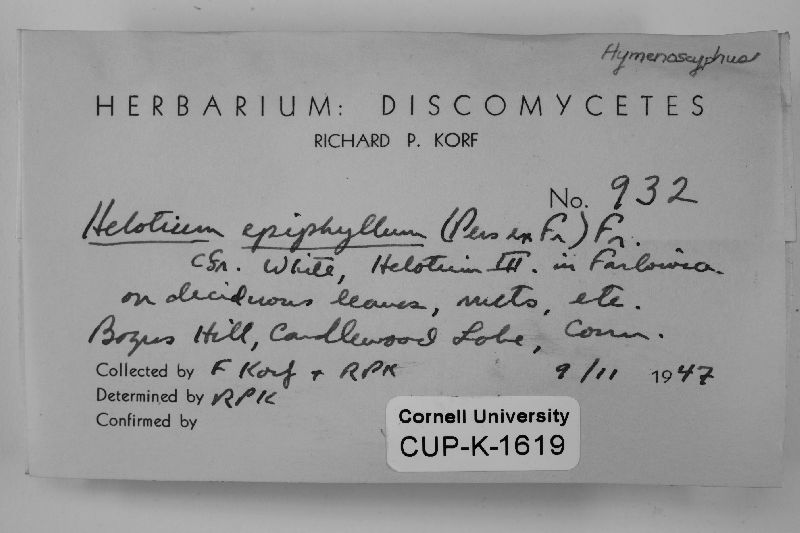 Hymenoscyphus
HERBARIUM: DISCOMYCETES
RICHARD P. KORF
No. 932
Helotium epiphyllum (Pers ex Fr) Fr.
White, Helotium III. in Farlowia.
on deciduous leaves, nuts, etc.
Bogus Hill, Candlewood Lake, Conn.
Collected by F Korf + RPK 9/11 1947
Determined by RPK
Confirmed by
Cornell University
CUP-K-1619